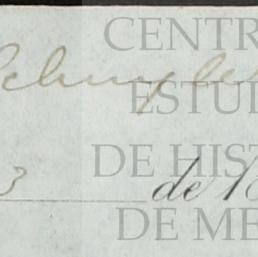 Schuyler
CENTR
ESTUD
DE HIST
3 de 18
DE ME